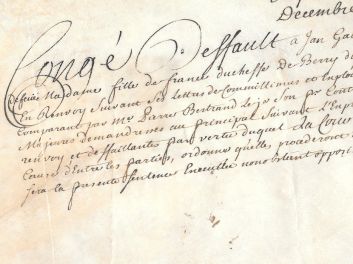 Décembre
Congé Deffault à Jan
deffeüe Madame fille de france duchesse De Berry
En Renvoy Suivant Ses lettres de Committimus et
Comparant par Me Pierre Bertrand le jo Son pr
Majeures demanderesses au principal Suivant
renvoy et deffaillantes par vertu duquel La Cour
Cause d'Entre les parties, ordonne qu'elles procederont
Sera la presente Sentence Executée nonobstant